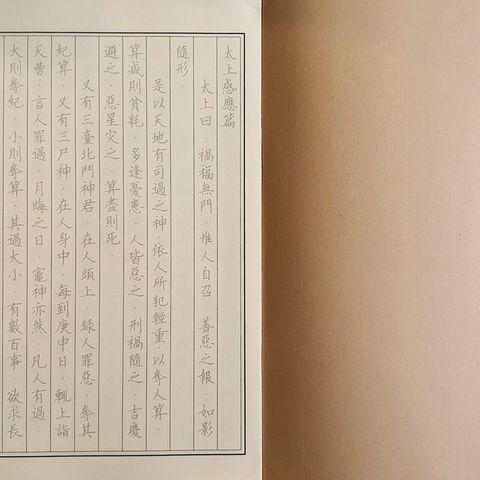 太上感應篇
太上曰．禍福無門．惟人自召．善惡之報．如影
隨形．
是以天地有司過之神．依人所犯輕重．以奪人算．
算減則貧耗．多逢憂患．人皆惡之．刑禍隨之．吉慶
避之．惡星災之．算盡則死．
又有三臺北斗神君．在人頭上．錄人罪惡．奪其
紀算．又有三尸神．在人身中．每到庚申日．輒上詣
天曹．言人罪過．月晦之日．竈神亦然．凡人有過．
大則奪紀．小則奪算．其過大小．有數百事．欲求長